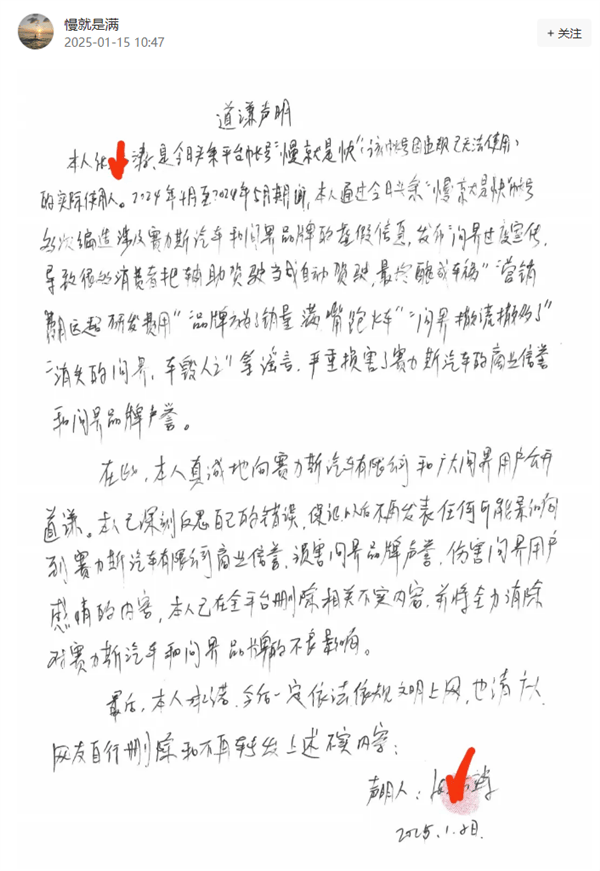 慢就是满
2025-01-15 10:47
+ 关注
道谦声明
本人 涛,是今日头条平台帐号"慢就是快"(该帐号因违规已无法使用)
的实际使用人。2024年4月至2024年5月期间,本人通过今日头条"慢就是快"帐号
多次编造涉及赛力斯汽车和问界品牌的虚假信息,发布"问界过度宣传,
导致很多消费者把辅助驾驶当成自动驾驶,最终酿成车祸""营销
费用远超研发费用""品牌方为了销量满嘴跑火车""问界撒谎撒多了"
"消失的问界,车毁人亡"等谣言,严重损害了赛力斯汽车的商业信誉
和问界品牌声誉。
在此,本人真诚地向赛力斯汽车有限公司和广大问界用户公开
道谦。本人已深刻反思自己的错误,保证以后不再发表任何可能影响
到赛力斯汽车有限公司商业信誉、损害问界品牌声誉、伤害问界用户
感情的内容,本人已在全平台删除相关不实内容,并将全力消除
对赛力斯汽车和问界品牌的不良影响。
最后,本人承诺,今后一定依法依规文明上网,也请广大
网友自行删除和不再转发上述不实内容;
声明人:
2025.1. 日